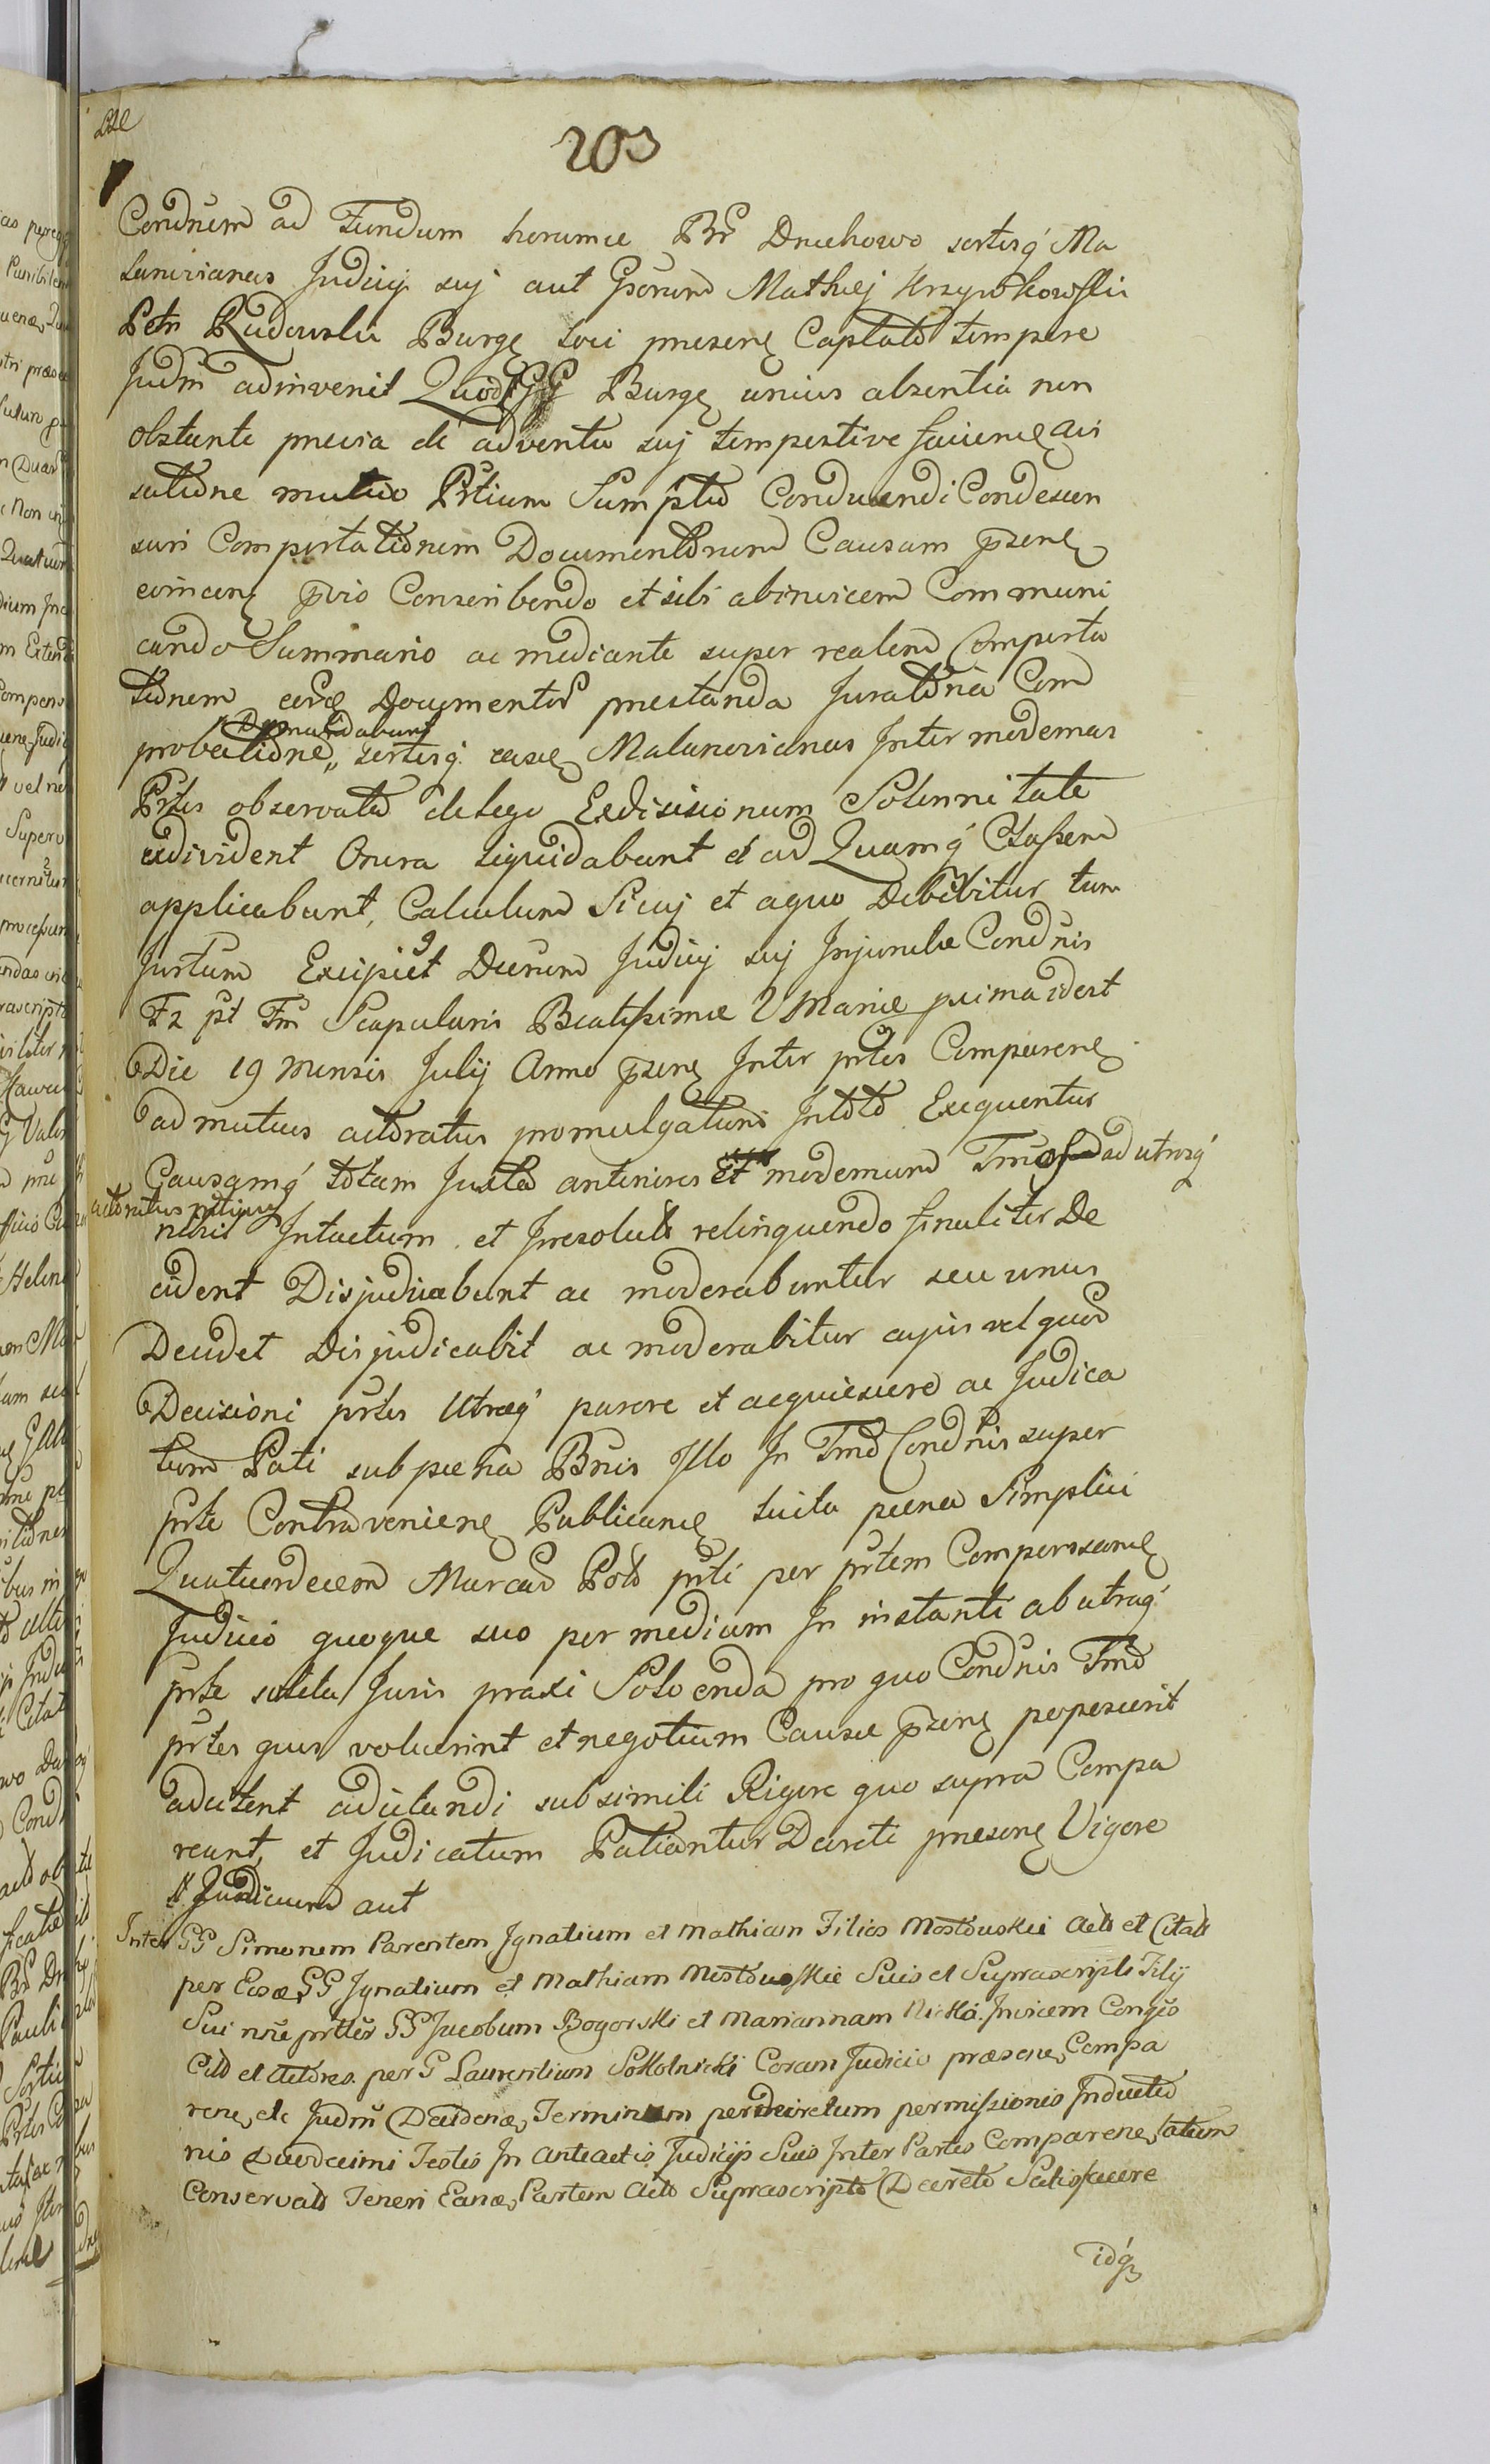 203
Condnem ad Fundum horumce Br Druchowo sortisq́ Ma
lanovianas Judicij suj aut Gsorum Mathiej Krzywkowski
Petri Rudowski Burgę loci presenę Captato tempore
Judm adinvenit Quod GG Burgę unius absentia non
obstante previa de adventu suj tempestive facienę avi
satione mutuo Prtium Sumptu Conducendi Condescen
suri Comportationem Documentorum Causam pzenę
concernę pvio Conscribendo et sibi abinvicem Communi
cando Summario ac mediante super realem Comporta
tionem eorę Documentor prestanda Juratoria Com
probatione sortisq́ easdę Malanovianas Inter modernas
Prtes observata de lege Exdivisionum Solennitate
exdivident Onera liquidabunt et ad Quamq́ Classem
applicabunt, Calculum Sicuj et aquo Debebitur tum
Justum Excipiet Decrum Judicij suj Injunctae Condnis
F2 pt Fm Scapularis Beatissimae V Mariae prima idest
Die 19 mensis Julij Anno pzenę Inter prtes Comparenę
ad mutuos actoratus promulgaturi Intoto Exequentur
Causamq́ totam Juxta anteriores Et modernum Tmos ad utrosq́
actoratus
nihil Intactum et Irresoluto relinquendo finaliter De
cident Disjudicabunt ac moderabuntur seu unus
Decidet Disjudicabit ac moderabitur cujus vel quod
Decisioni prtes Utraeq́ parere et acquiescere ac Judica
tum Pati sub paena Bnis Illo In Tmo Condnis super
prte Contravenienę Publicandę luita paena Simplici
Quatuordecem Marcas Polo prti per prtem Compensandę
Judicio quoque suo per medium In instanti ab utraq́
prte solita Juris praxi Solvenda pro quo Condnis Tmo
prtes quas voluerint et negotium Causae pzenę poposcerit
adcitent adcitandi sub simili Rigore quo supra Compa
reant, et Judicatum Patiantur Decreti presenę Vigore
Judicium aut
Inter GG Simonem Parentem Ignatium et Mathiam Filios Mostowskie Acto et Citato
per Eosę GG Ignatium et Mathiam Mostowskie Suis et Suprascripti Filij
Sui noie prttes GG Jacobum Bogorski et Mariannam Nicka Invicem Congio
Cito et Actores per G Laurentium Sokolnicki Coram Judicio praesenę Compa
renę, etc Judm Decidenę, Terminum per decretum permissionis Inducto
nis Duodecimi Testis In anteactis Judicijs Suis Inter Partes Comparenę, latum
Conservato Teneri Eanę, Partem Acto Suprascripto Decreto Satisfacere
idq́